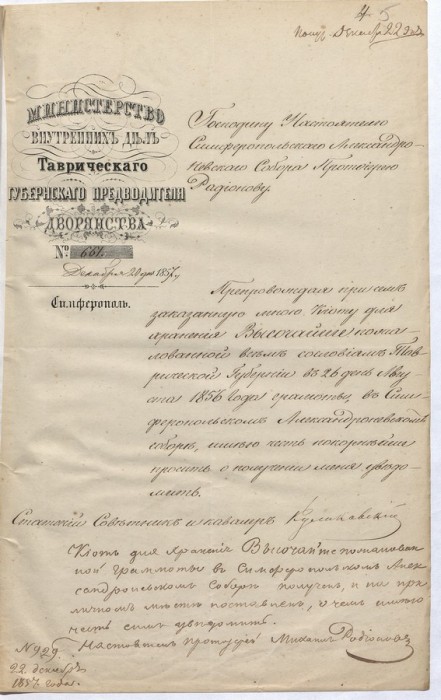 4 5
Полу. Декабря 22 дня
МИНИСТЕРСТВО
ВНУТРЕННИХЪ ДѢЛЪ
ТАВРИЧЕСКАГО
ГУБЕРНСКАГО ПРЕДВОДИТЕЛЯ
ДВОРЯНСТВА
№ 661.
Декабря 20 дня 1857 г.
Симферополь.
Господину Настоятелю
Симферопольскаго Александро-
Невскаго Собора Протоіерею
Радіонову.
Препровождая при семъ
заказанную мною Кіоту для
храненія Высочайше пожа-
лованной всѣмъ сословіямъ Тав-
рической Губерніи въ 26 день Авгу-
ста 1856 года грамоты, въ Сим-
феропольскомъ Александроневскомъ
соборѣ, имѣю честь покорнѣйше
просить о полученіи меня уведо-
мить.
Статскій Совѣтникъ и кавалеръ
Кіотъ для храненія Высочайше пожалован-
ной грамоты въ Симферопольскомъ Алек-
сандроневскомъ Соборѣ полученъ, и на при-
личномъ мѣстѣ поставленъ, о чемъ имѣю
честь симъ увѣдомить.
Настоятель протоіерей Михаилъ Родіоновъ
№ 929.
22 декабря
1857 года.